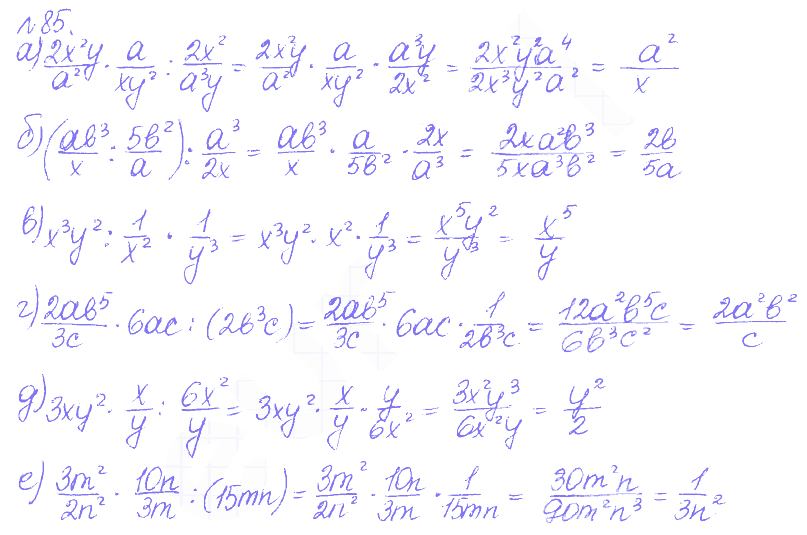 №85.
а) 2x²y/a² · a/xy² : 2x²/a³y = 2x²y/a² · a/xy² · a³y/2x² = 2x²y²a⁴/2x³y²a² = a²/x
б) (ab³/x : 5b²/a) : a³/2x = ab³/x · a/5b² · 2x/a³ = 2xa²b³/5xa³b² = 2b/5a
в) x³y² : 1/x² · 1/y³ = x³y² · x² · 1/y³ = x⁵y²/y³ = x⁵/y
г) 2ab⁵/3c · 6ac : (2b³c) = 2ab⁵/3c · 6ac · 1/2b³c = 12a²b⁵c/6b³c² = 2a²b²/c
д) 3xy² · x/y : 6x²/y = 3xy² · x/y · y/6x² = 3x²y³/6x²y = y²/2
е) 3m²/2n² · 10n/3m : (15mn) = 3m²/2n² · 10n/3m · 1/15mn = 30m²n/90m²n³ = 1/3n²